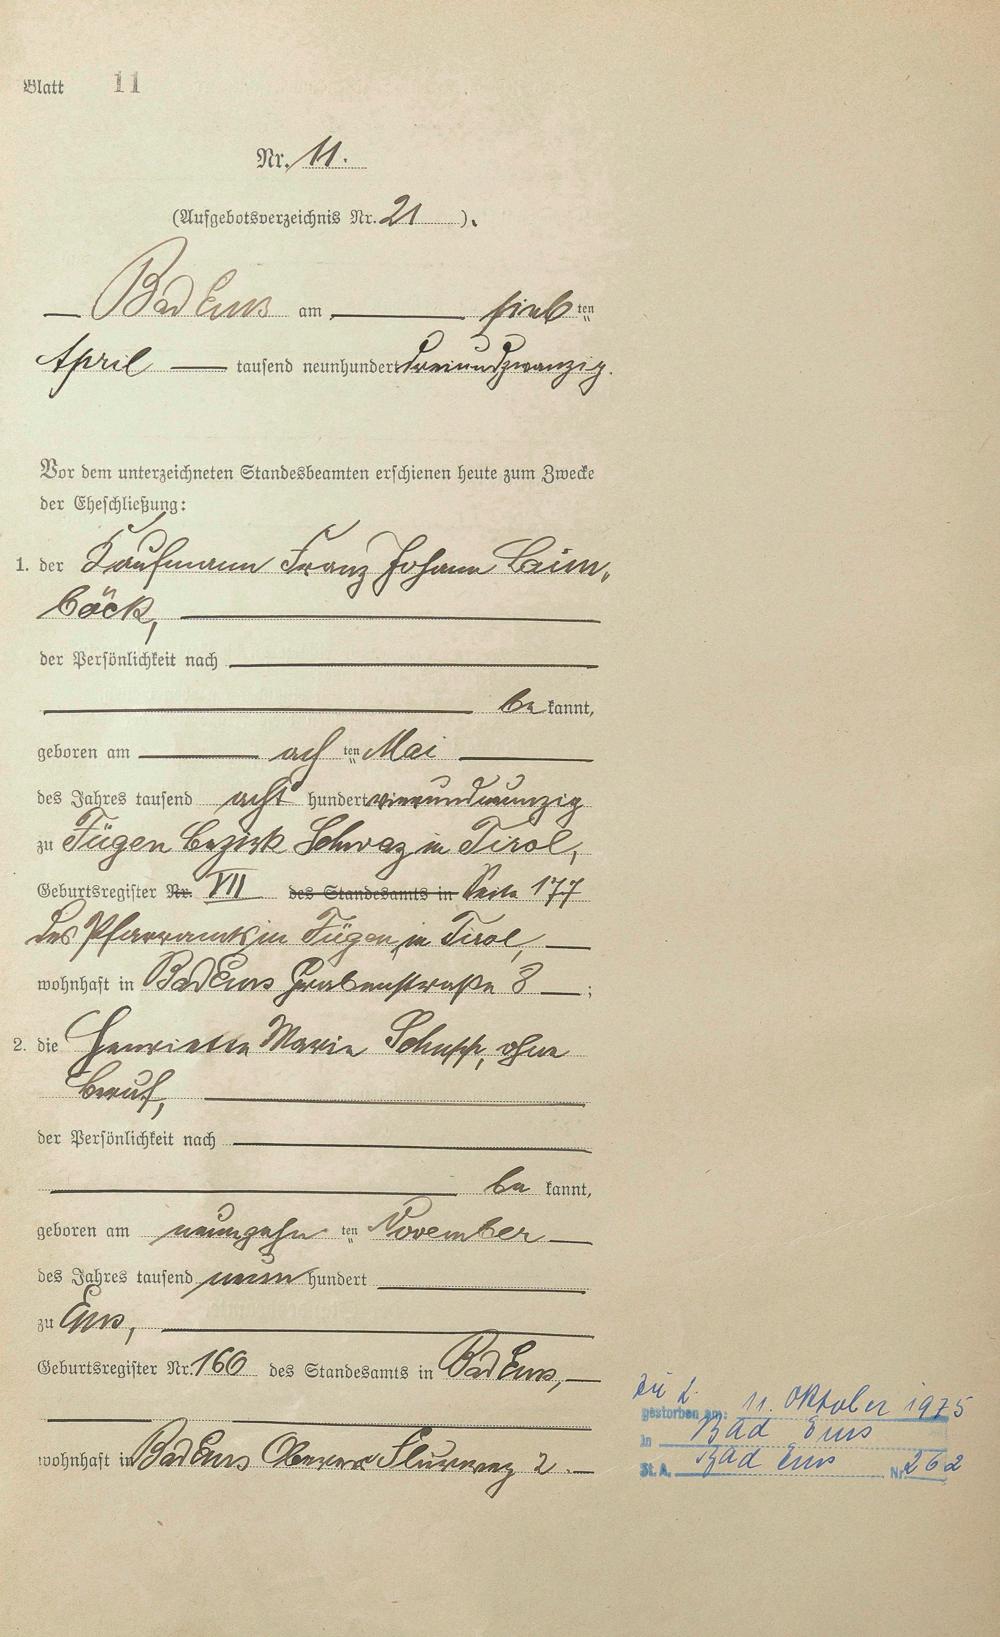 Blatt 11
Nr. 11.
(Aufgebotsverzeichnis Nr. 21 ).
Bad Ems am sieb ten
April tausend neunhundert dreiundzwanzig.
Vor dem unterzeichneten Standesbeamten erschienen heute zum Zwecke
der Eheschließung:
1. der Kaufmann Franz Johann Leim-
böck,
der Persönlichkeit nach
be kannt,
geboren am ach ten Mai
des Jahres tausend acht hundert vierundneunzig
zu Fügen Bezirk Schwaz in Tirol,
Geburtsregister Nr. VII des Standesamts in Seite 177
des Pfarramts in Fügen in Tirol,
wohnhaft in Bad Ems Grabenstraße 8 ;
2. die Henriette Marie Schupp, ohne
Beruf,
der Persönlichkeit nach
be kannt,
geboren am neunzehn ten November
des Jahres tausend neun hundert
zu Ems,
Geburtsregister Nr. 160 des Standesamts in Bad Ems,
wohnhaft in Bad Ems Oberer Flurweg 2.
Zu 2.
gestorben am: 11. Oktober 1975
in Bad Ems
St. A. Bad Ems Nr. 262